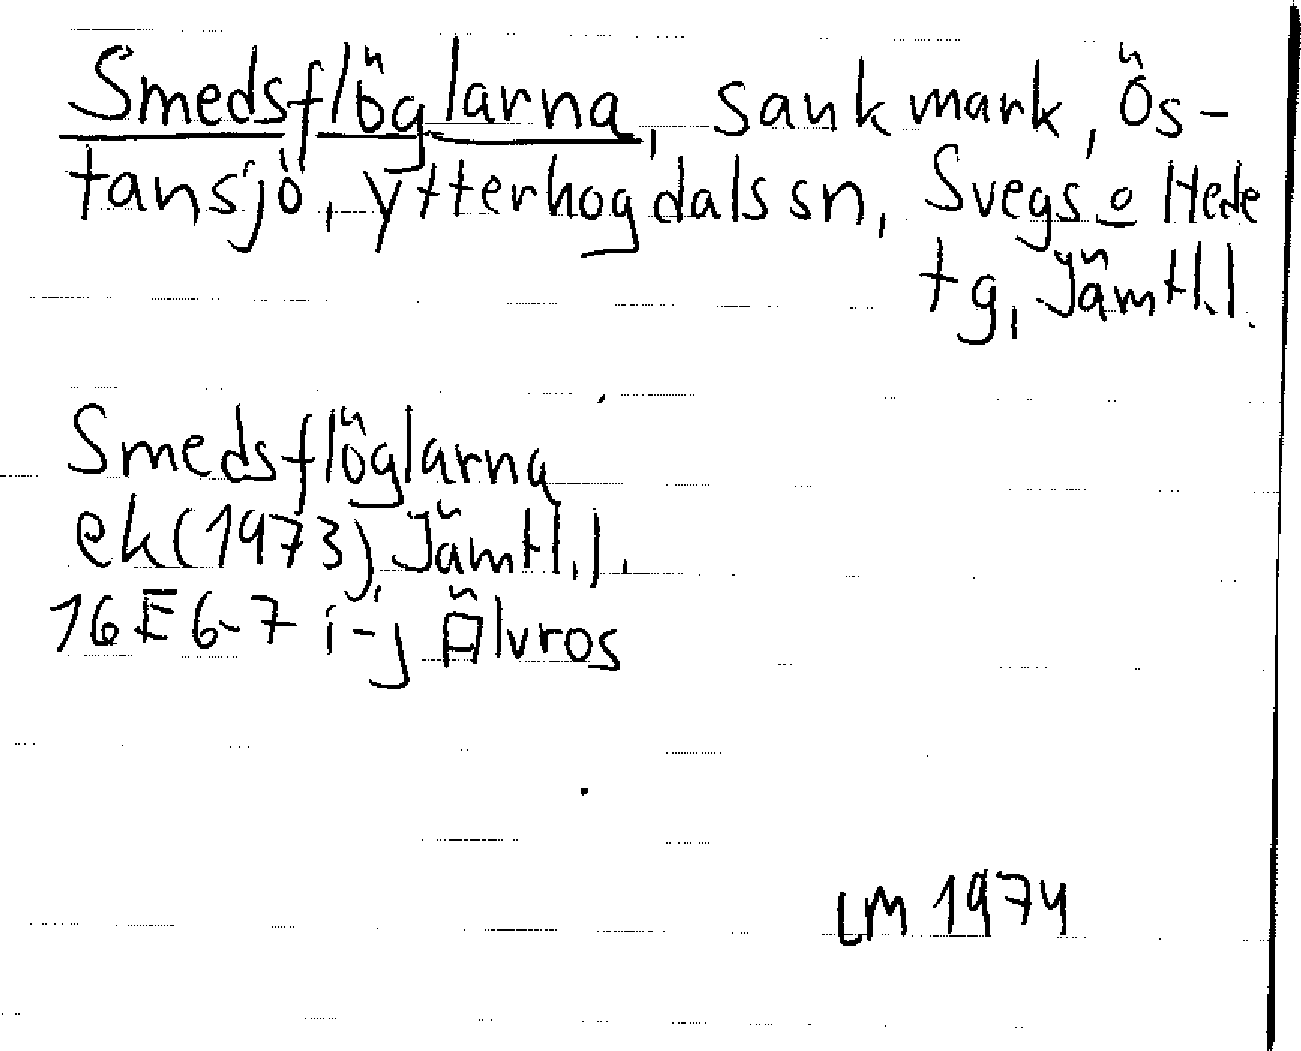 Smedsflöglarna, sankmark, Ös-
tansjö, Ytterhogdals sn, Svegs o Hede
tg, Jämtl.l.
Smedsflöglarna
ek (1973), Jämtl.l.
16E 6-7 i-j Älvros
LM 1974